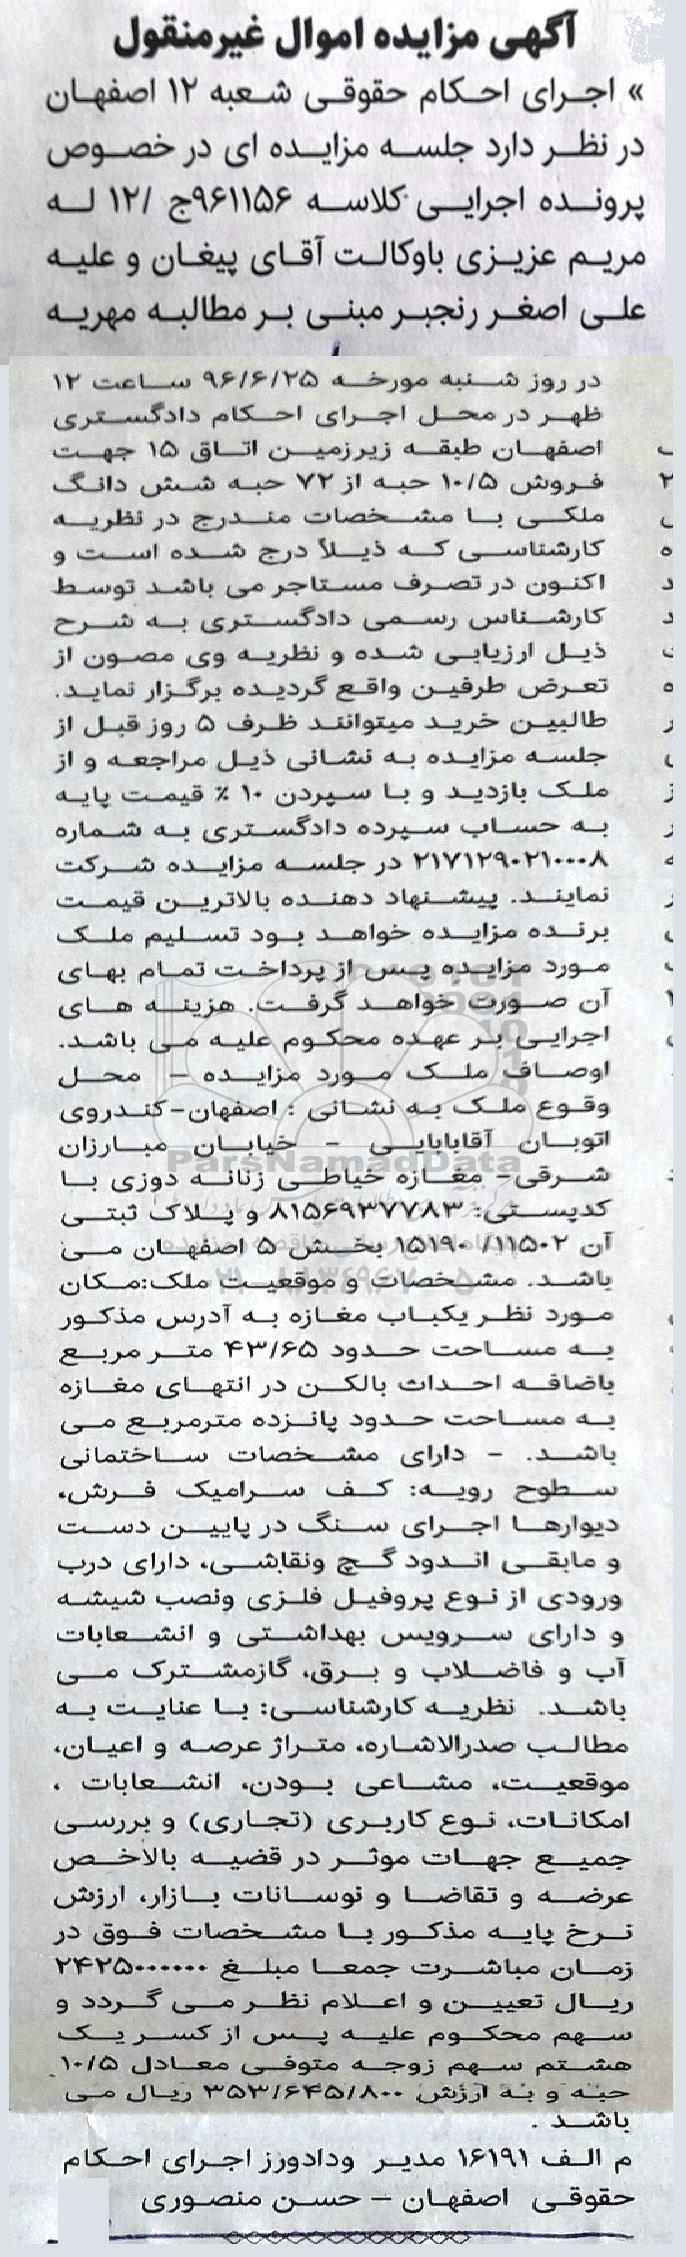 آگهی مزایده اموال غیرمنقول
» اجرای احکام حقوقی شعبه ۱۲ اصفهان
در نظر دارد جلسه مزایده ای در خصوص
پرونده اجرایی کلاسه ۹۶۱۱۵۶ج /۱۲ له
مریم عزیزی باوکالت آقای پیغان و علیه
علی اصغر رنجبر مبنی بر مطالبه مهریه
در روز شنبه مورخه ۹۶/۶/۲۵ ساعت ۱۲
ظهر در محل اجرای احکام دادگستری
اصفهان طبقه زیرزمین اتاق ۱۵ جهت
فروش ۱۰/۵ حبه از ۷۲ حبه شش دانگ
ملکی با مشخصات مندرج در نظریه
کارشناسی که ذیلاً درج شده است و
اکنون در تصرف مستاجر می باشد توسط
کارشناس رسمی دادگستری به شرح
ذیل ارزیابی شده و نظریه وی مصون از
تعرض طرفین واقع گردیده برگزار نماید.
طالبین خرید میتوانند ظرف ۵ روز قبل از
جلسه مزایده به نشانی ذیل مراجعه و از
ملک بازدید و با سپردن ۱۰ ٪ قیمت پایه
به حساب سپرده دادگستری به شماره
۲۱۷۱۲۹۰۲۱۰۰۰۸ در جلسه مزایده شرکت
نمایند. پیشنهاد دهنده بالاترین قیمت
برنده مزایده خواهد بود تسلیم ملک
مورد مزایده پس از پرداخت تمام بهای
آن صورت خواهد گرفت. هزینه های
اجرایی بر عهده محکوم علیه می باشد.
اوصاف ملک مورد مزایده – محل
وقوع ملک به نشانی : اصفهان-کندروی
اتوبان آقابابایی - خیابان مبارزان
ParsNamadData
شرقی- مغازه خیاطی زنانه دوزی با
کدپستی: ۸۱۵۶۹۳۷۷۸۳ و پلاک ثبتی
آن ۱۱۵۰۲/ ۱۵۱۹۰ بخش ۵ اصفهان می
باشد. مشخصات و موقعیت ملک:مکان
مورد نظر یکباب مغازه به آدرس مذکور
به مساحت حدود ۴۳/۶۵ متر مربع
باضافه احداث بالکن در انتهای مغازه
به مساحت حدود پانزده مترمربع می
باشد. - دارای مشخصات ساختمانی
سطوح رویه: کف سرامیک فرش،
دیوارها اجرای سنگ در پایین دست
و مابقی اندود گچ ونقاشی، دارای درب
ورودی از نوع پروفیل فلزی ونصب شیشه
و دارای سرویس بهداشتی و انشعابات
آب و فاضلاب و برق، گازمشترک می
باشد. نظریه کارشناسی: با عنایت به
مطالب صدرالاشاره، متراژ عرصه و اعیان،
موقعیت، مشاعی بودن، انشعابات ،
امکانات، نوع کاربری (تجاری) و بررسی
جمیع جهات موثر در قضیه بالاخص
عرضه و تقاضا و نوسانات بازار، ارزش
نرخ پایه مذکور با مشخصات فوق در
زمان مباشرت جمعا مبلغ ۲۴۲۵۰۰۰۰۰۰
ریال تعیین و اعلام نظر می گردد و
سهم محکوم علیه پس از کسر یک
هشتم سهم زوجه متوفی معادل ۱۰/۵
حبه و به ارزش ۳۵۳/۶۴۵/۸۰۰ ریال می
باشد .
م الف ۱۶۱۹۱ مدیر ودادورز اجرای احکام
حقوقی اصفهان – حسن منصوری